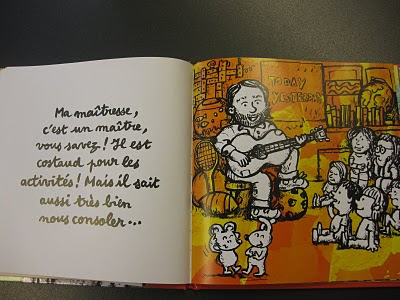 Ma maîtresse,
c'est un maître,
vous savez ! Il est
costaud pour les
activités ! Mais il sait
aussi très bien
nous consoler...
TODAY
YESTERDAY